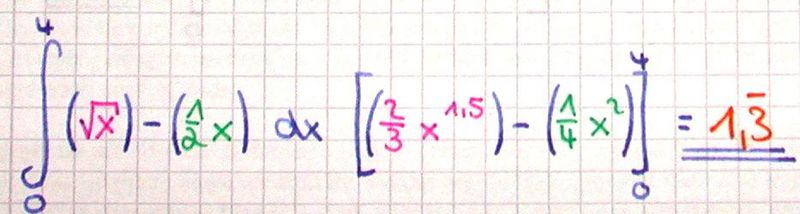 ∫₀⁴ (√x) - (1/2 x) dx [(2/3 x^1,5) - (1/4 x²)]₀⁴ = 1,3̅